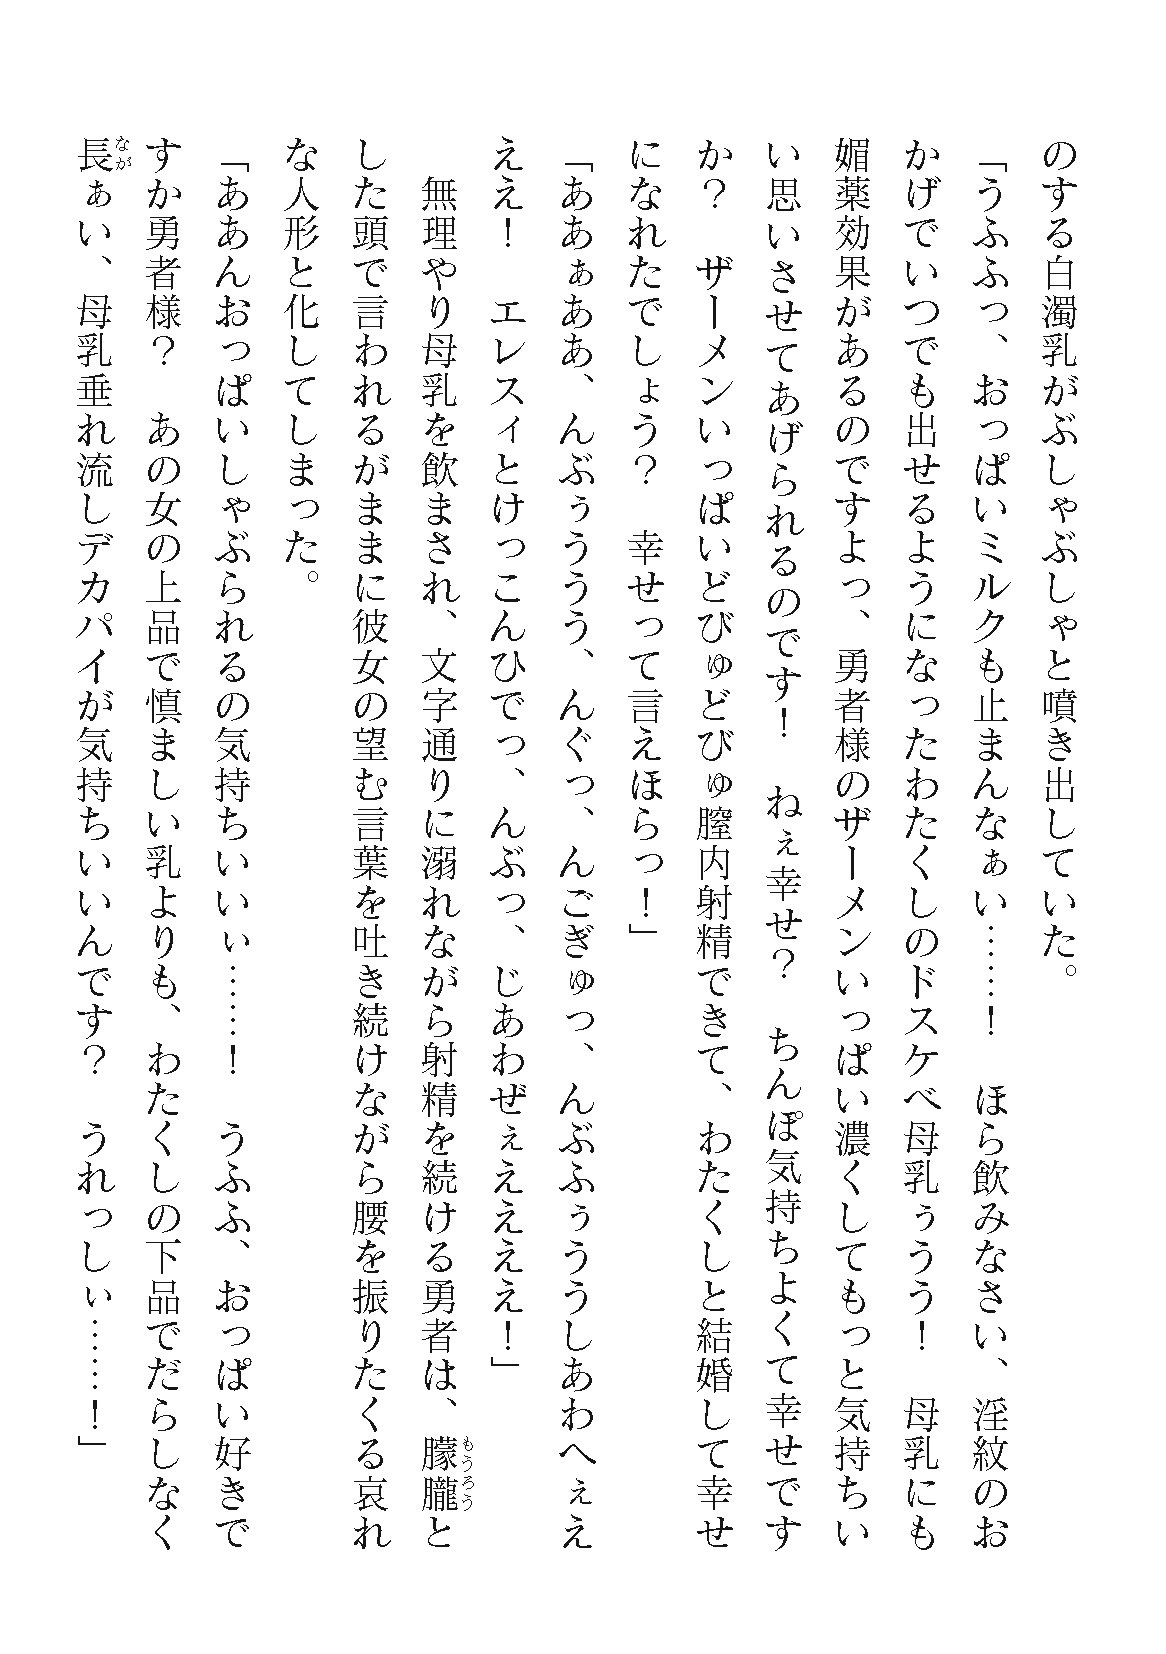 のする白濁乳がぶしゃぶしゃと噴き出していた。
「うふふっ、おっぱいミルクも止まんなぁい……！　ほら飲みなさい、淫紋のお
かげでいつでも出せるようになったわたくしのドスケベ母乳ぅうう！　母乳にも
媚薬効果があるのですよっ、勇者様のザーメンいっぱい濃くしてもっと気持ちい
い思いさせてあげられるのです！　ねぇ幸せ？　ちんぽ気持ちよくて幸せです
か？　ザーメンいっぱいどびゅどびゅ膣内射精できて、わたくしと結婚して幸せ
になれたでしょう？　幸せって言えほらっ！」
「ああぁああ、んぶぅううう、んぐっ、んごぎゅっ、んぶふぅううしあわへぇえ
ええ！　エレスィとけっこんひでっ、んぶっ、じあわぜぇええええ！」
　無理やり母乳を飲まされ、文字通りに溺れながら射精を続ける勇者は、朦朧と
した頭で言われるがままに彼女の望む言葉を吐き続けながら腰を振りたくる哀れ
な人形と化してしまった。
「ああんおっぱいしゃぶられるの気持ちいいぃ……！　うふふ、おっぱい好きで
すか勇者様？　あの女の上品で慎ましい乳よりも、わたくしの下品でだらしなく
長ぁい、母乳垂れ流しデカパイが気持ちいいんです？　うれっしぃ……！」